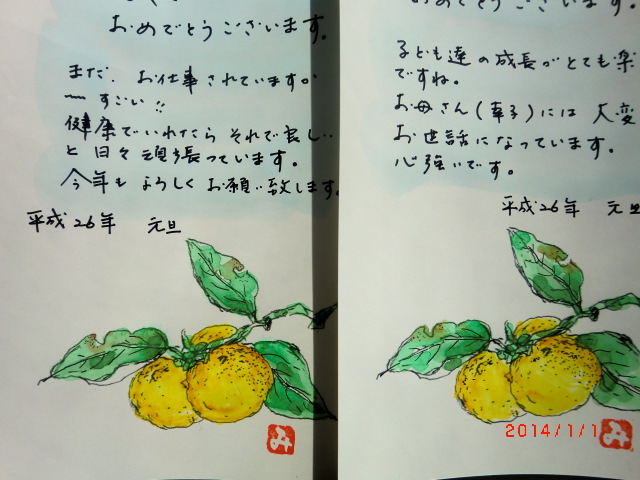 おめでとうございます。
まだ、お仕事されていますか
〜すごい!!
健康でいれたらそれで良し‥
と日々頑張っています。
今年もよろしくお願い致します。
平成26年 元旦
み
おめでとうございます。
子ども達の成長がとても楽
ですね。
お母さん(幸子)には大変
お世話になっています。
心強いです。
平成26年 元旦
み
2014/1/1